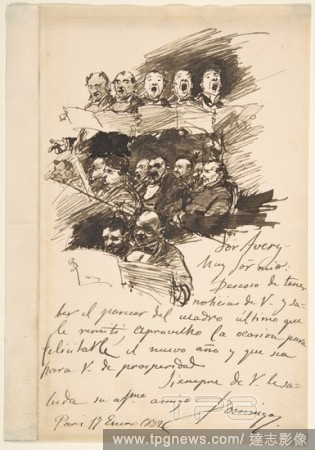 Sor Avery
Muy Sór mio:
Deseoso de tener
noticias de V. y sa-
ber el parecer del cuadro último que
le remití aprovecho la ocasion para
felicitarle el nuevo año y que sea
para V. de prosperidad
Siempre de V. le sa-
luda su afmo amigo Domingo
Paris 17 Enero
TPG
www.tpgnews.com / 達志影像